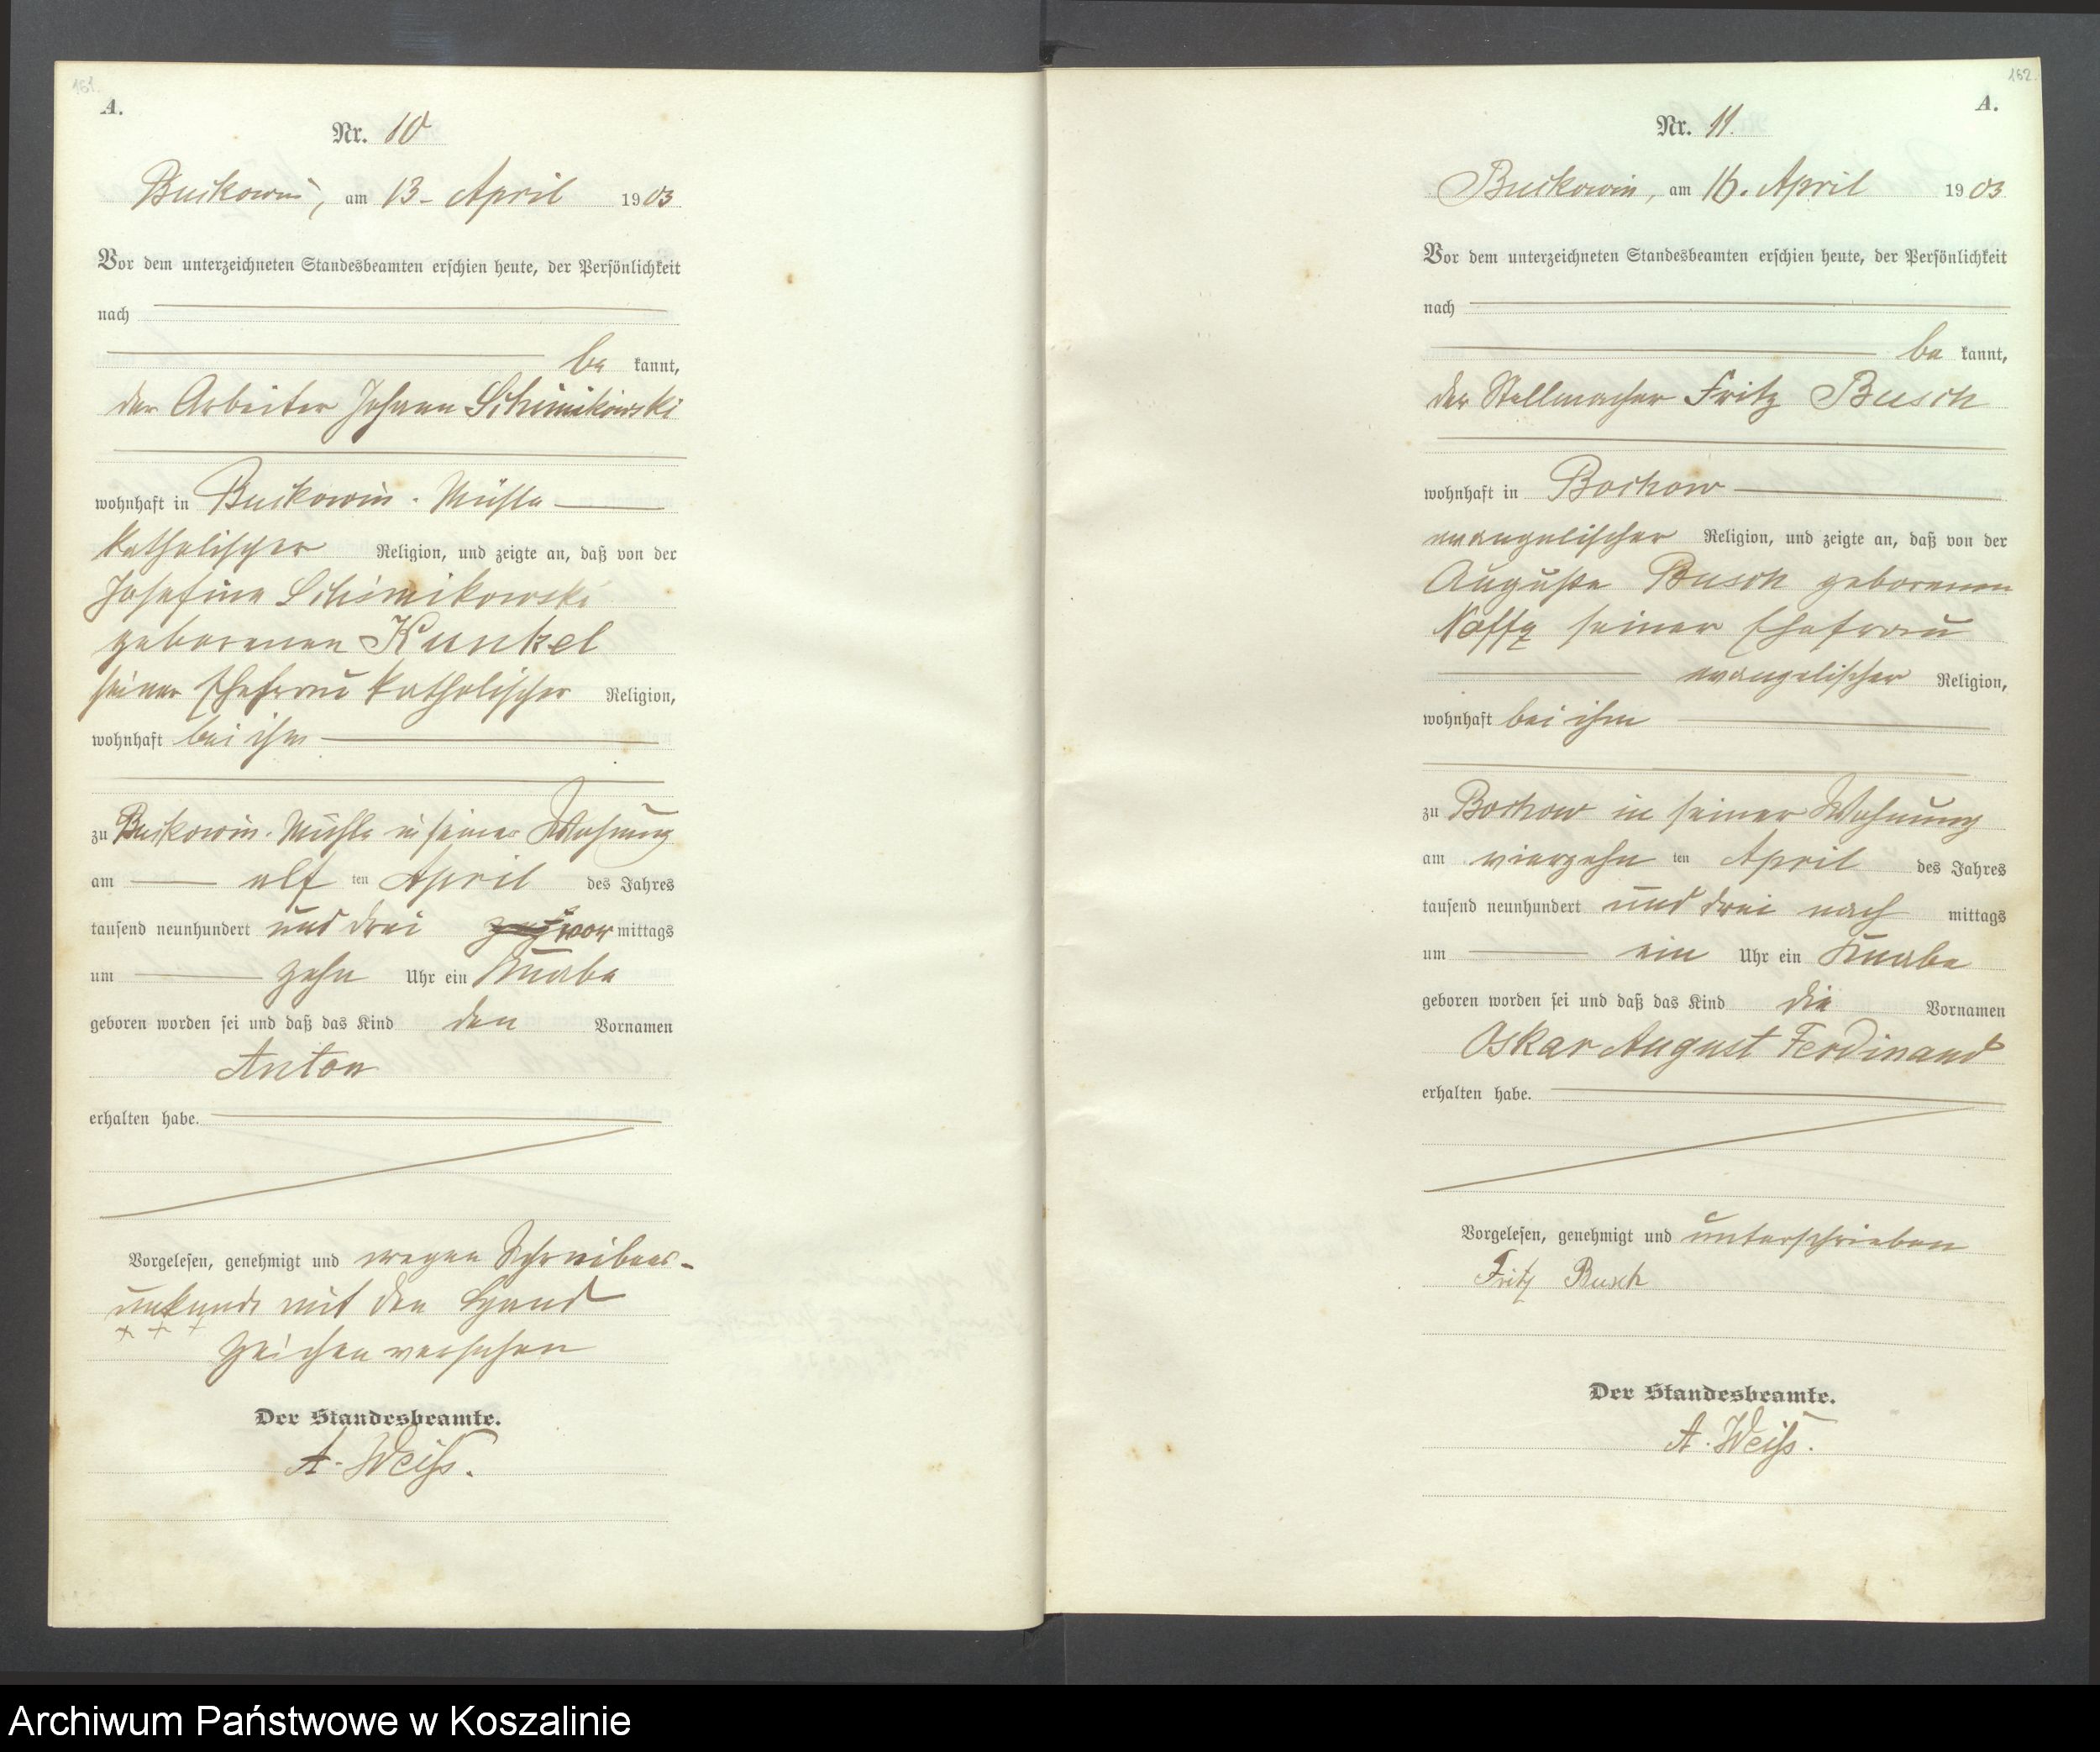 151.
A.
Nr. 10
Buckowin, am 13. April 1903
Vor dem unterzeichneten Standesbeamten erschien heute, der Persönlichkeit
nach
be kannt,
der Arbeiter Johann
wohnhaft in Buckowin. Mühle
katholischer Religion, und zeigte an, daß von der
Josefine
geborenen Kunkel
seiner Ehefrau katholischer Religion,
wohnhaft bei ihm
zu Buckowin. Mühle in seiner Wohnung
am elf ten April des Jahres
tausend neunhundert und drei vor mittags
um zehn Uhr ein Knabe
geboren worden sei und daß das Kind den Vornamen
Anton
erhalten habe.
Vorgelesen, genehmigt und wegen Schreibens-
unkunde mit den Hand
+ + +
zeichen versehen
Der Standesbeamte.
A. Weiß.
162.
A.
Nr. 11.
Buckowin, am 16. April 1903
Vor dem unterzeichneten Standesbeamten erschien heute, der Persönlichkeit
nach
be kannt,
der Stellmacher Fritz Busch
wohnhaft in Bochow
evangelischer Religion, und zeigte an, daß von der
Auguste Busch geborenen
seiner Ehefrau
evangelischer Religion,
wohnhaft bei ihm
zu Bochow in seiner Wohnung
am vierzehn ten April des Jahres
tausend neunhundert und drei nach mittags
um ein Uhr ein Knabe
geboren worden sei und daß das Kind die Vornamen
Oskar August Ferdinand
erhalten habe.
Vorgelesen, genehmigt und unterschrieben
Fritz Busch
Der Standesbeamte.
A. Weiß.
Archiwum Państwowe w Koszalinie